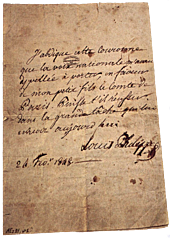 J'abdique cette Couronne
que la voix nationale m'avait
appellé à porter, en faveur
de mon petit fils le Comte de
Paris. Puisse-t-il réussir
dans la grande tâche qui lui
échoit aujourd'hui.
Louis Philippe
24 Fev. 1848